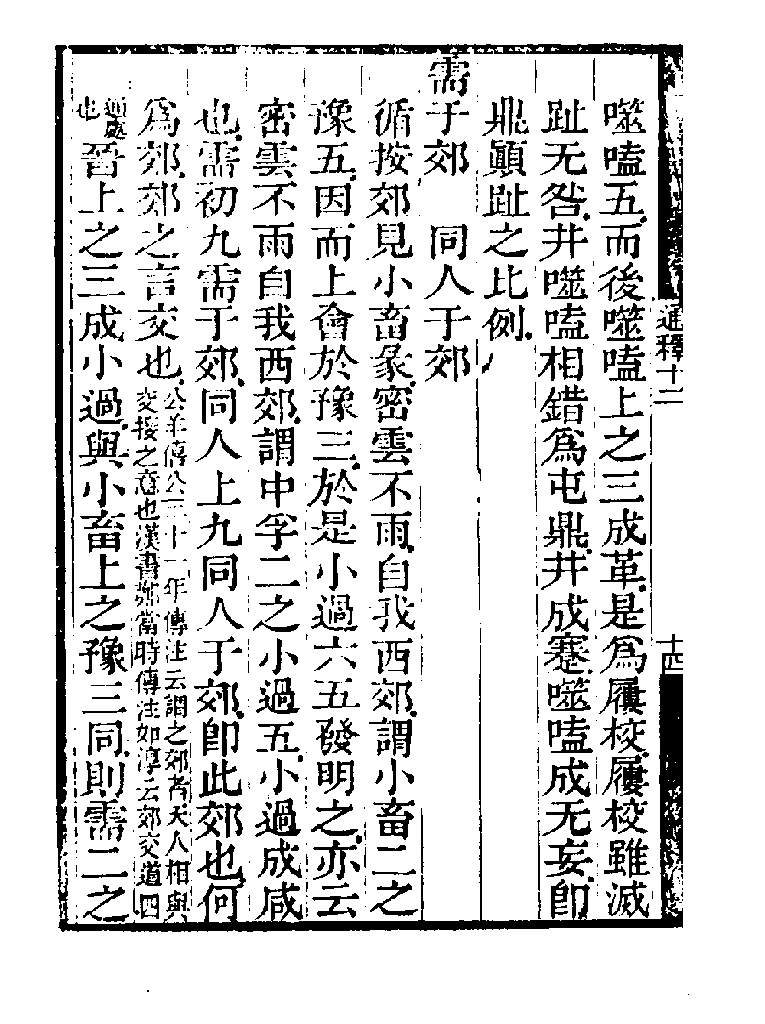 噬嗑五而後噬嗑上之三成革是爲屨校屨校雖滅
趾无咎井噬嗑相錯爲屯鼎井成蹇噬嗑成无妄卽
鼎顚趾之比例
需于郊　同人于郊
循按郊見小畜彖密雲不雨自我西郊謂小畜二之
豫五因而上會於豫三於是小過六五發明之亦云
密雲不雨自我西郊謂中孚二之小過五小過成咸
也需初九需于郊同人上九同人于郊卽此郊也何
爲郊郊之言交也公羊傳公三十一年傳注云謂之郊者天人相與
交接之意也漢書鄭當時傳注如淳云郊交道四
通處
也晉上之三成小過與小畜上之豫三同則需二之
通釋十二
十四